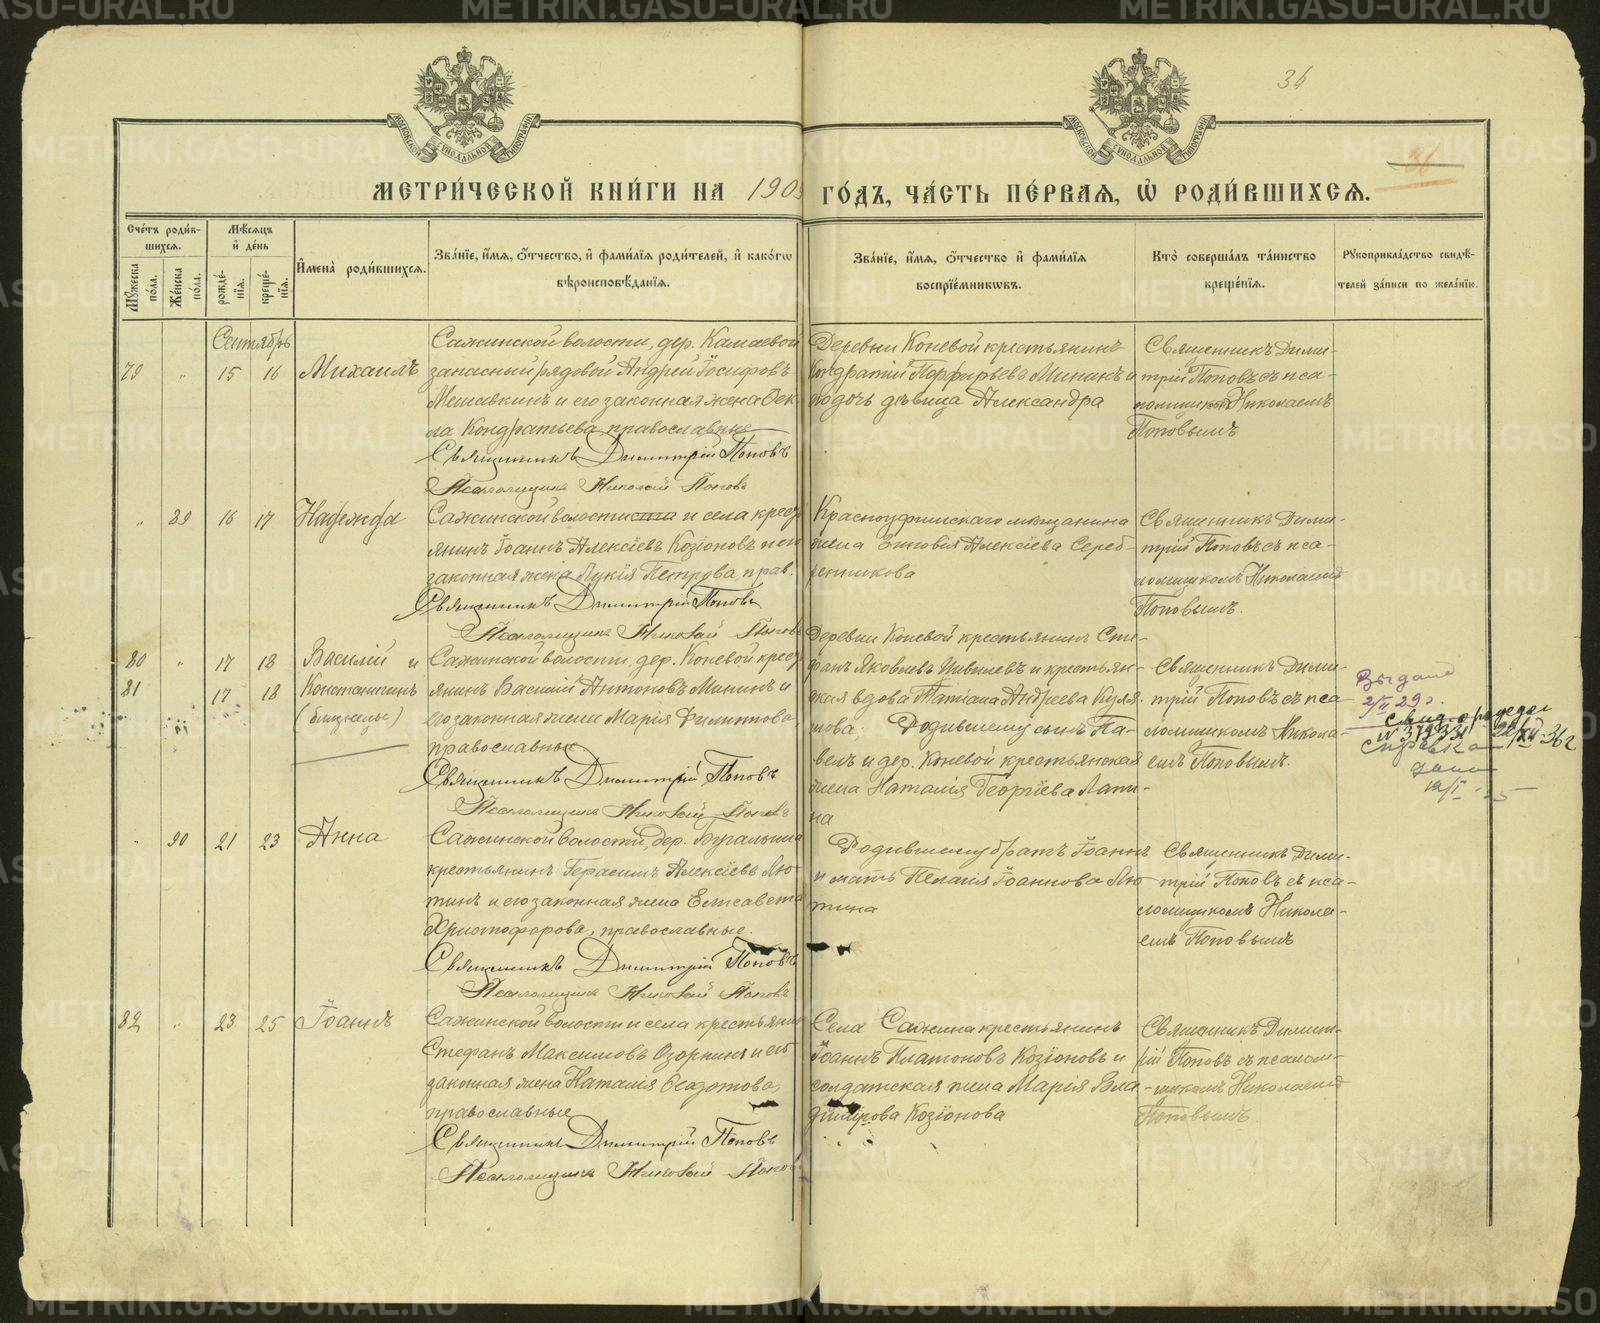 34
36
МЕТРИ́ЧЕСКОЙ КНИ́ГИ НА 1903 ГО́ДЪ, ЧА́СТЬ ПЕ́РВАЯ, Ѡ҆ РОДИ́ВШИХСЯ.
Сче́тъ роди́вшихся.
Мꙋжеска по́ла.
Же́нска по́ла.
Мѣ́сяцъ и҆ де́нь
рожде́нїя.
креще́нїя.
И҆мена̀ роди́вшихся.
Зва́нїе, и҆́мя, ѻ҆́тчество, и҆ фами́лїя роди́телей, и҆ како́гѡ вѣроисповѣ́данїя.
Зва́нїе, и҆́мя, ѻ҆́тчество и҆ фами́лїя воспрїе́мникѡвъ.
Кто̀ соверша́лъ та́инство креще́нїя.
Рꙋкоприкла́дство свидѣ́телей за́писи по жела́нїю.
Сентябрь
79 " 15 16 Михаилъ
Сажинской волости, дер. Камаевой
запасный рядовой Андрей Іосифовъ
и его законная жена Фек-
ла Кондратьева, православные
Священникъ Димитрій Поповъ
Псаломщикъ Николай Поповъ
Деревни Коневой крестьянинъ
Кондратій Порфирьевъ Мининъ и
дочь дѣвица Александра
Священникъ Дими-
трій Поповъ съ пса-
ломщикомъ Николаемъ
Поповымъ
" 89 16 17 Надежда
Сажинской волости и села кресть-
янинъ Іоаннъ Алексіевъ Козіоновъ и его
законная жена Лукія Петрова, прав.
Священникъ Димитрій Поповъ
Псаломщикъ Николай Поповъ
Красноуфимскаго мѣщанина
жена Алексіева Сереб-
ренникова
Священникъ Дими-
трій Поповъ съ пса-
ломщикомъ Николаемъ
Поповымъ.
80 " 17 18 Василій и
81 17 18 Константинъ
(близнецы)
Сажинской волости, дер. Коневой кресть-
янинъ Василій Антоновъ Мининъ и
его законная жена Марія Филиппова,
православные
Священникъ Димитрій Поповъ
Псаломщикъ Николай Поповъ
Деревни Коневой крестьянинъ Сте-
фанъ Яковлевъ и крестьян-
ская вдова Татіана Андреева
Родившему сынъ Па-
велъ и дер. Коневой крестьянская
жена Наталія Георгіева Лапи-
на
Священникъ Дими-
трій Поповъ съ пса-
ломщикомъ Никола-
емъ Поповымъ.
Выдано
2/II 29 г.
Справка
дана
" 90 21 23 Анна
Сажинской волости, дер.
крестьянинъ Герасимъ Алексіевъ Лю-
тинъ и его законная жена Елисавета
Христофорова, православные.
Священникъ Димитрій Поповъ
Псаломщикъ Николай Поповъ
Родившему братъ Іоаннъ
и мать Пелагія Іоаннова Лю-
тина
Священникъ Дими-
трій Поповъ съ пса-
ломщикомъ Никола-
емъ Поповымъ
82 " 23 25 Іоаннъ
Сажинской волости и села крестьянинъ
Стефанъ Максимовъ Озорнинъ и его
законная жена Наталія
православные
Священникъ Димитрій Поповъ
Псаломщикъ Николай Поповъ
Села Сажина крестьянинъ
Іоаннъ Платоновъ Козіоновъ и
солдатская жена Марія Вла-
димірова Козіонова
Священникъ Димит-
рій Поповъ съ псалом-
щикомъ Николаемъ
Поповымъ.
METRIKI.GASO-URAL.RU